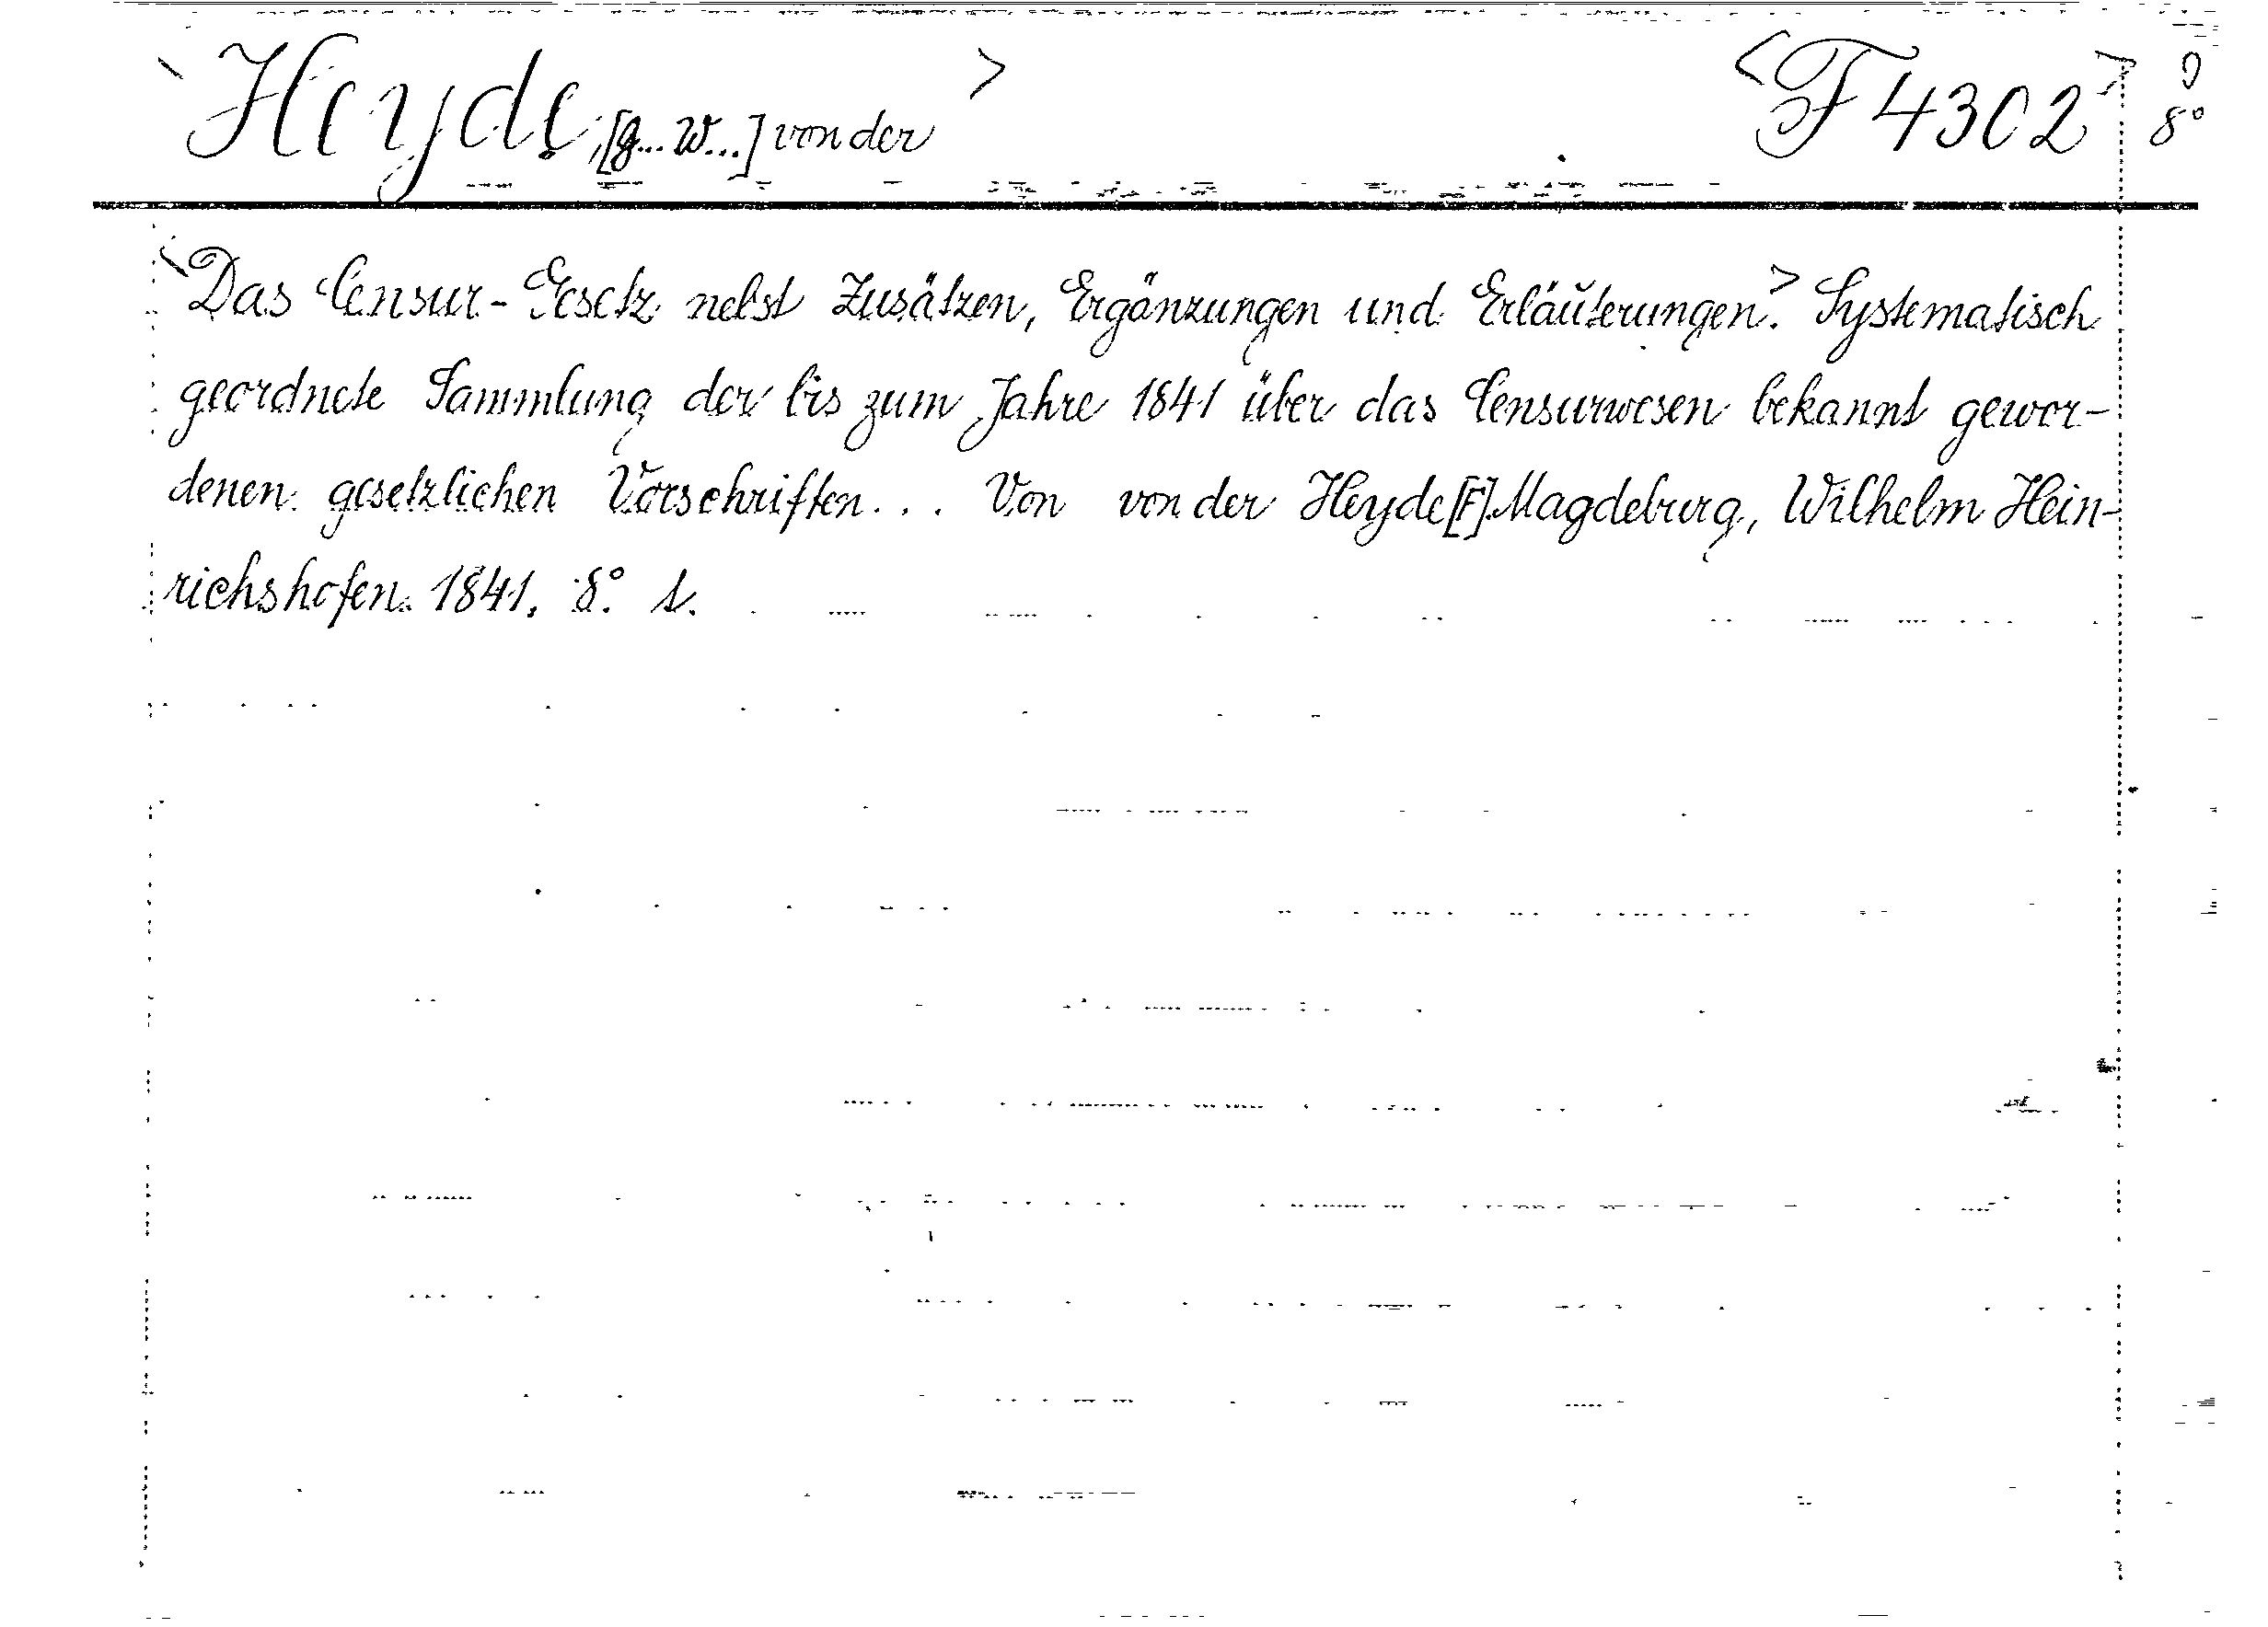 <Heyde, [G... W...] von der> <F 4302> 8°
<Das Censur-Gesetz nebst Zusätzen, Ergänzungen und Erläŭterungen.> Systematisch
geordnete Sammlung der bis zum Jahre 1841 über das Censurwesen bekannt gewor-
denen gesetzlichen Vorschriften... Von von der Heyde [F]. Magdeburg, Wilhelm Hein-
richshofen. 1841. 8°. 1.